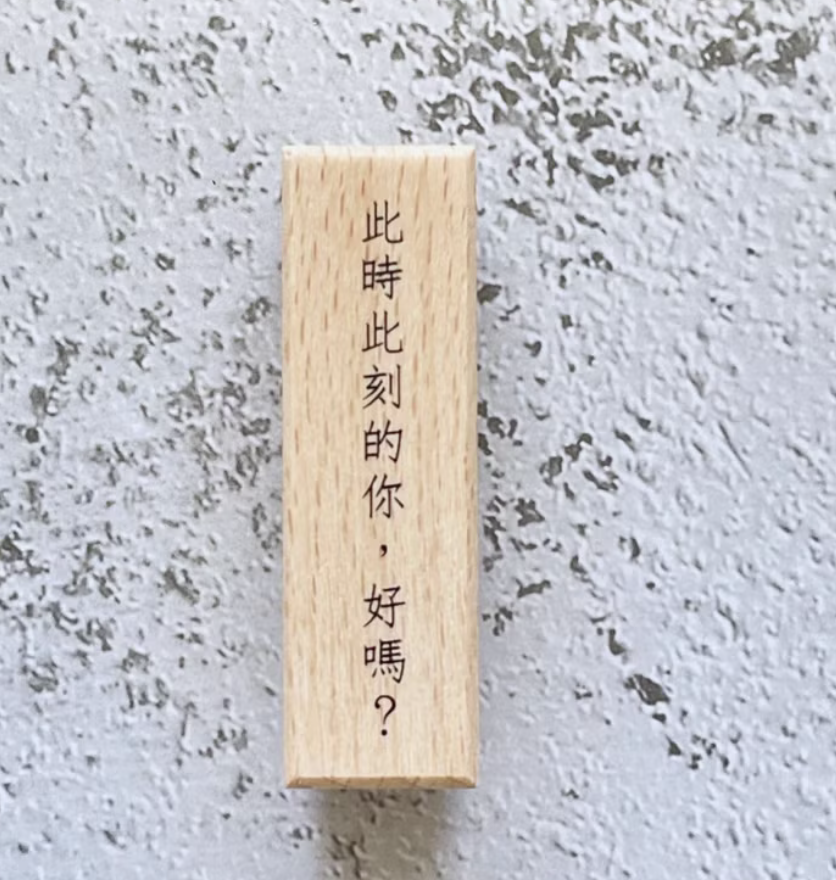 此時此刻的你，好嗎？